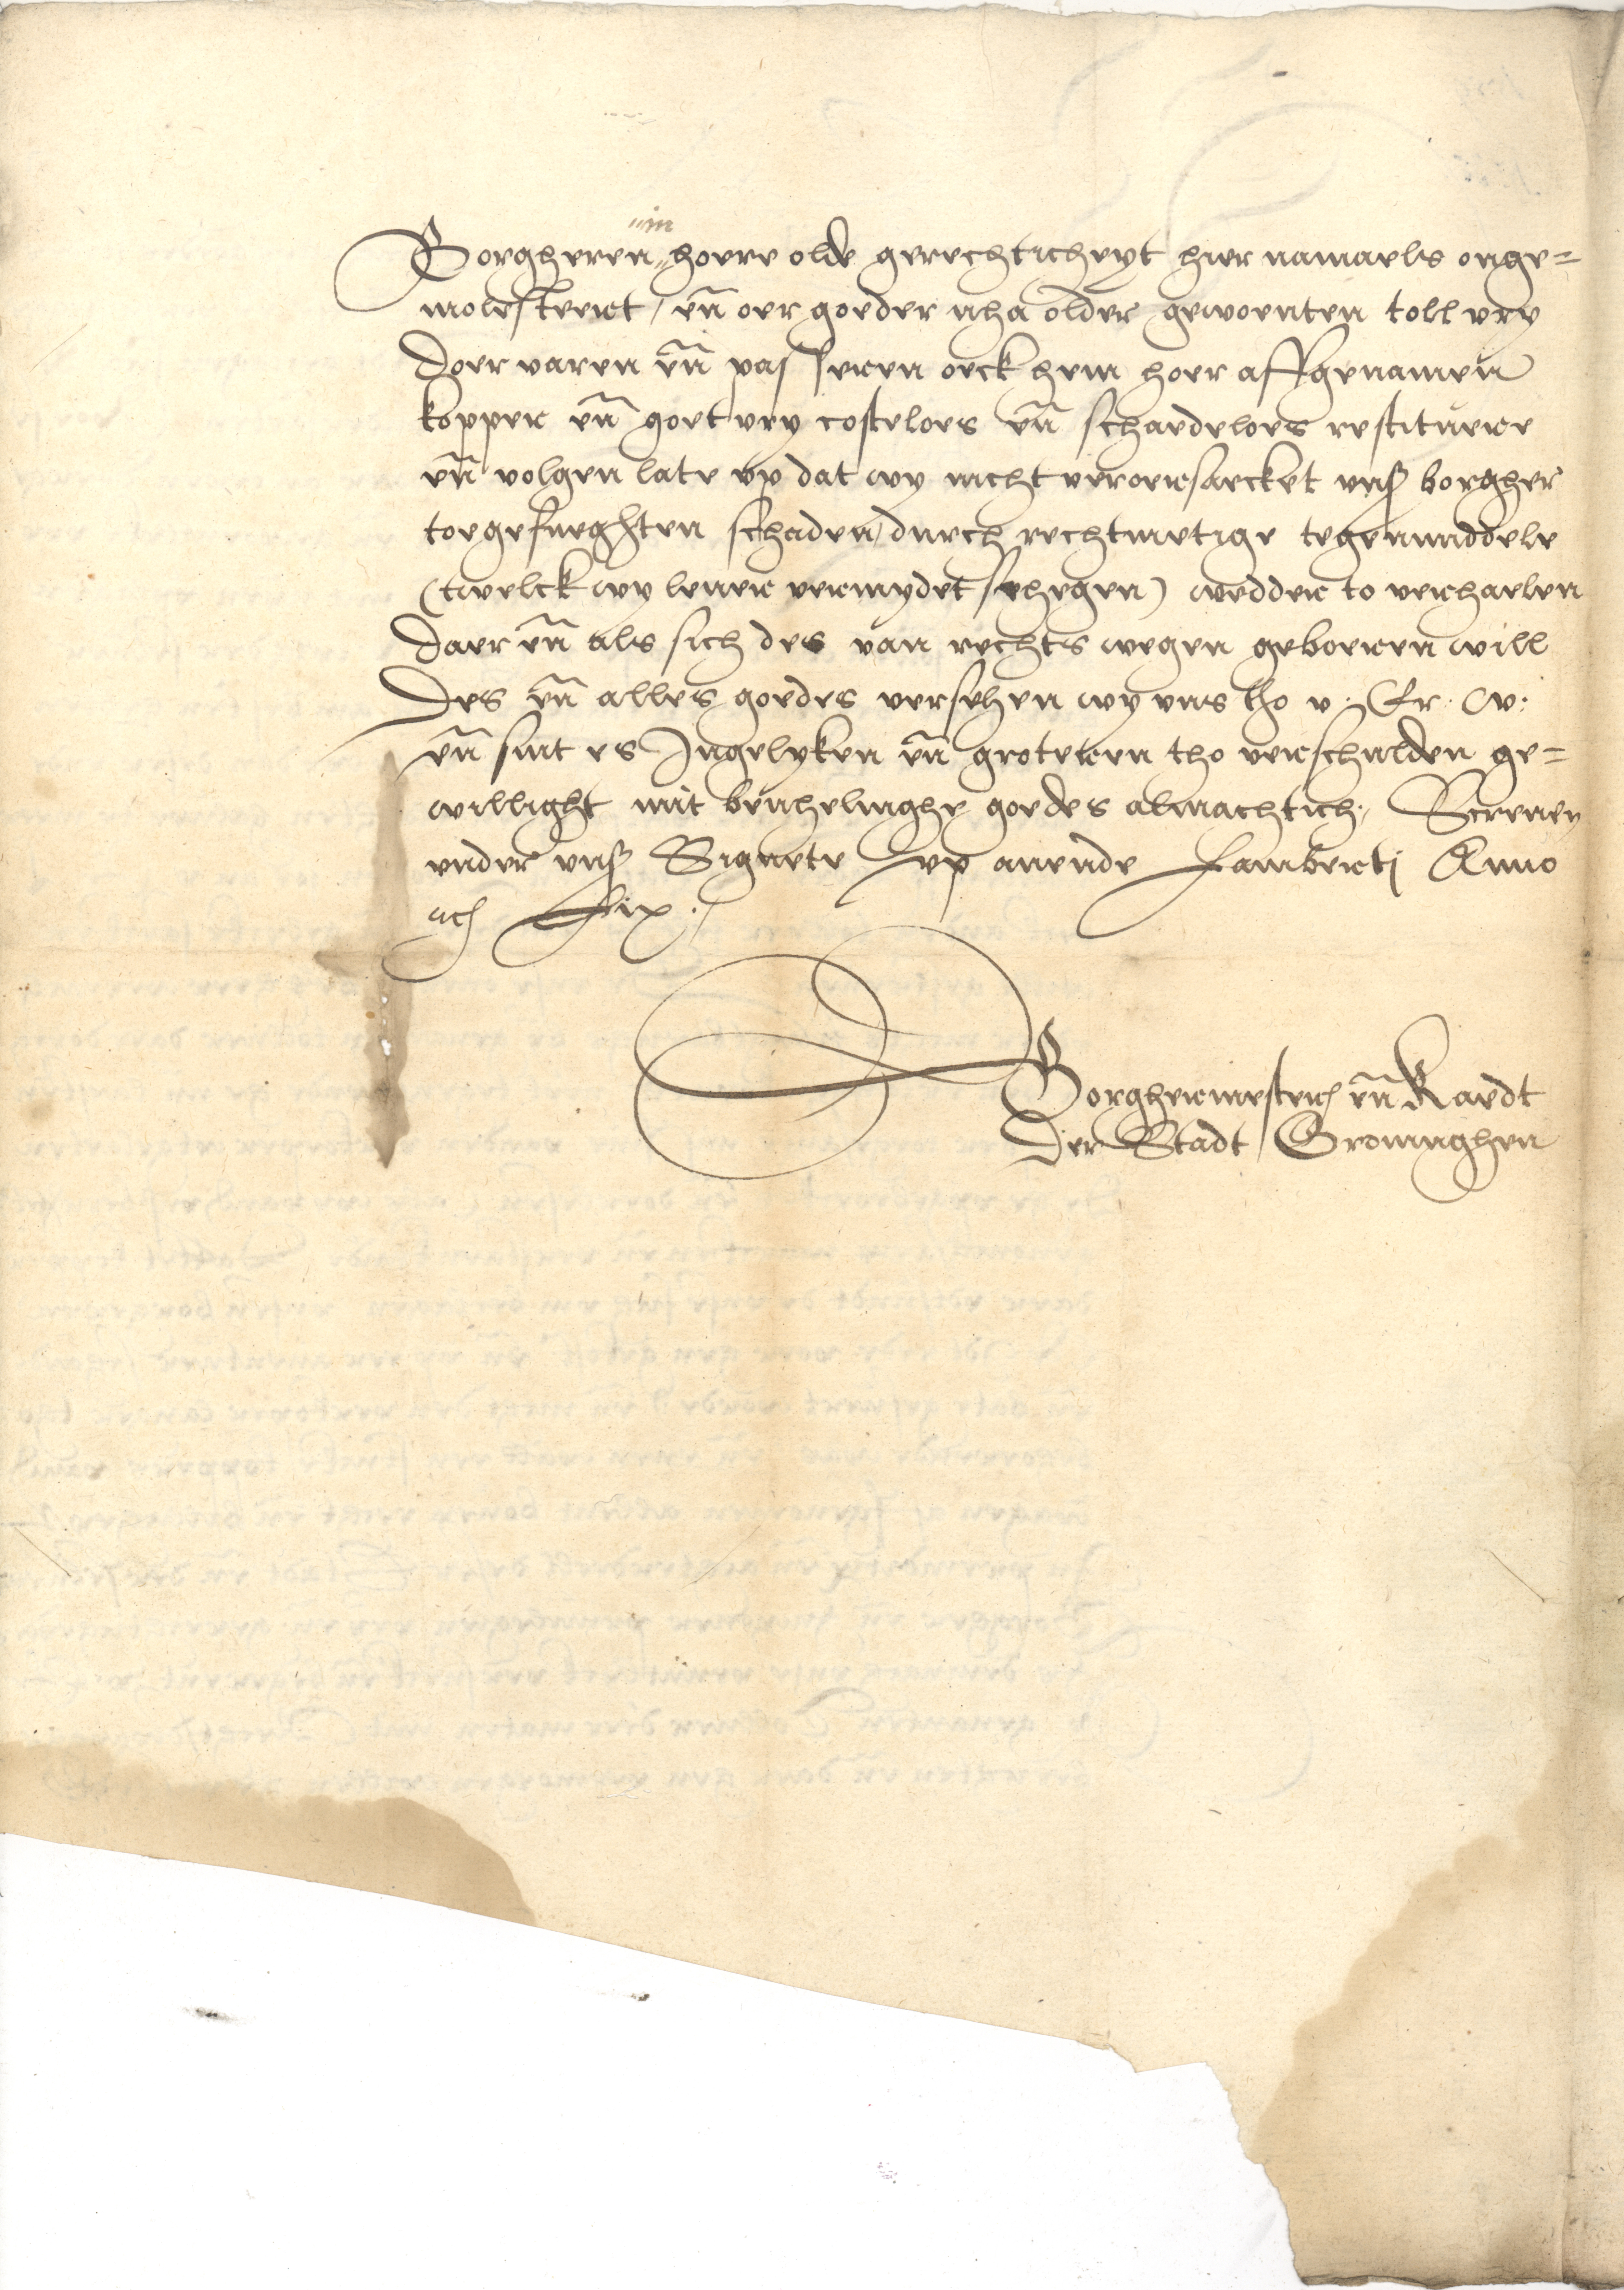 Borgheren in hoere olde gerechticheyt hier namaels onge=
molesteert, en̄ oer goeder nha older gewoenten toll vry
doer varen en̄ passeren oeck hem hoer affgenamen
kopper en̄ goet vry costeloes en̄ schaedeloes restituere
en̄ volgen late vp dat wy nicht veroersaecket vnß borgher
toegefueghten schaden, durch rechtmetige tegenmiddele
(twelck wy lever vermydet sehegen) wedder to verhaelen
daer en̄ als sich des van rechts wegen geboeren will
Des en̄ alles goedes versehen wy vns tho v. Er. W.
en̄ sint es Ingelyken en̄ groteren tho verschulden ge=
willight mit benhelinghe goedes almachtich. Screven
vnder vnß Signete vp avende Lamberti Anno
etc Lix.
Borghermester en̄ Raedt
Der Stadt Groninghen